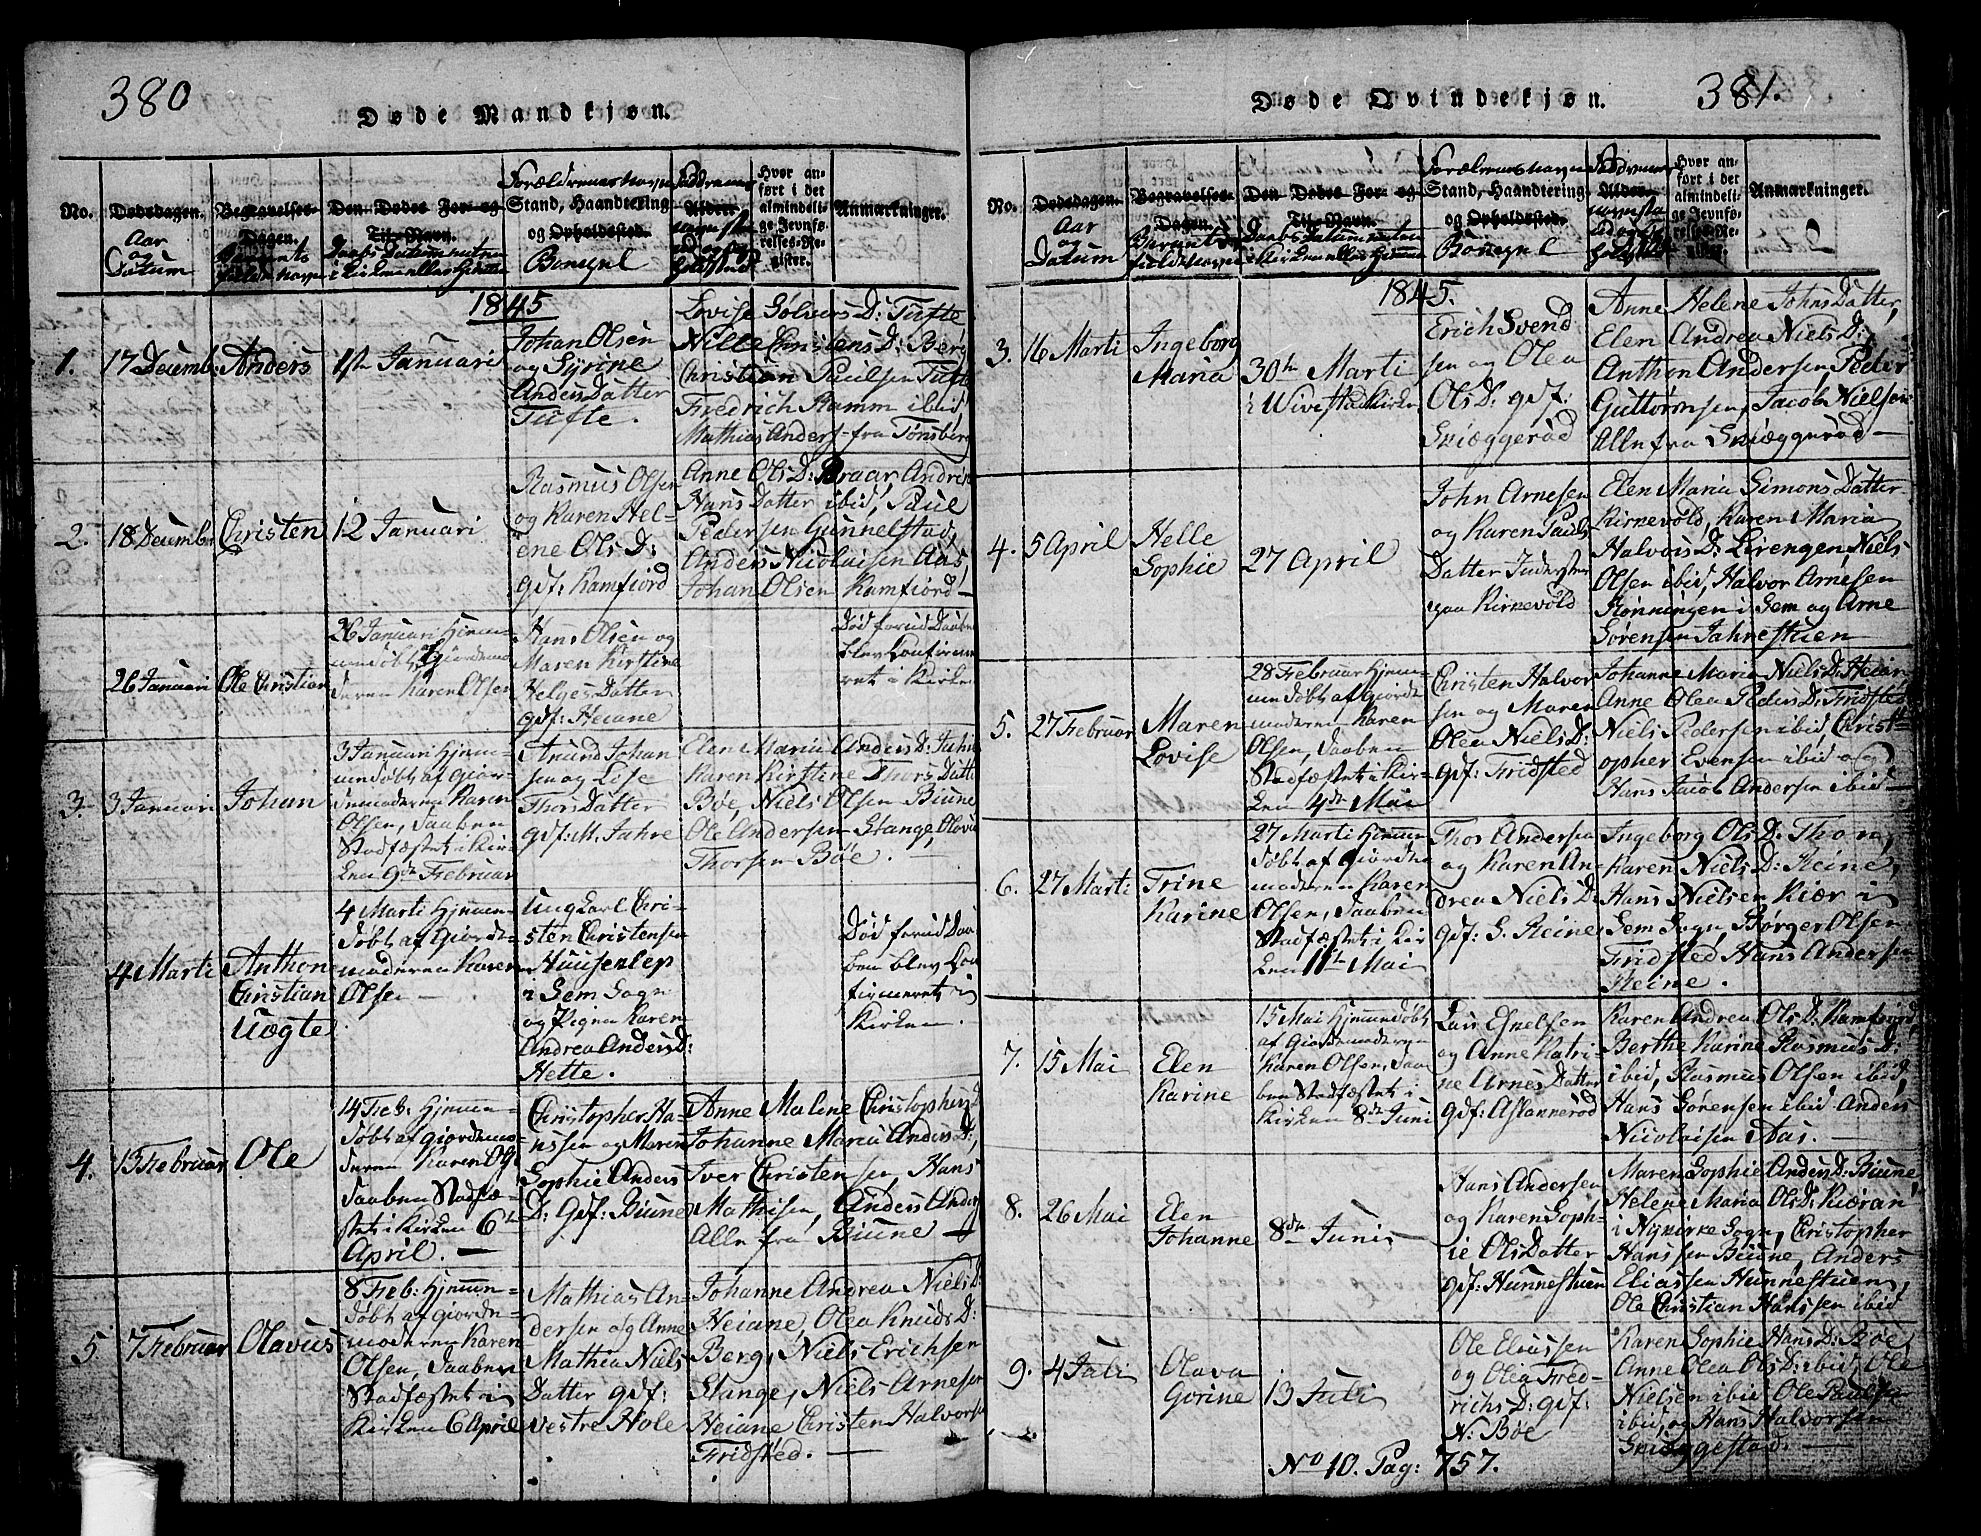 380
Døde Mandkjøn.
No.
Dødsdagen.
Aar
og
Datum
Begravelses-
Dagen.
Barnets
fulde Navn
Den Dødes For- og
Til-Navn.
Daabs Datum enten
i Kirken eller Hiemme
Forældrenes Navn
Stand, Haandtering
og Opholdssted.
Bopæl
Faddernes
Alder.
Navn, Stand
og Opholdssted
Hvor an-
ført i det
almindeli-
ge Jevnfø-
relses-Re-
gister.
Anmærkninger.
1845
1.
17 Decemb:
Anders
1ste Januari
Johan Olsen
og Syrine
Anders Datter
Tufte.
Lovise Sølvers D: Tufte
Nille Christens D: Berg
Christian Paulsen Tufte
Fredrich Ramm ibid
Mathias Anders- fra Tønsberg
2.
18 Decembr
Christen
12 Januari
Rasmus Olsen
og Karen Hel-
ene Ols D:
gdf: Ramfiord
Anne Ols D: Braar, Andrea
Hans Datter ibid, Paul
Pedersen Gunnelstad,
Anders Nicolaisen Aas,
Johan Olsen Ramfiord—
26 Januari
Ole Christian
26 Januari Hjem-
medøbt af Giordemo-
deren Karen Olsen
Hans Olsen og
Maren Kirstine
Helges Datter
gdf: Heiane
Død forud Daaben
blev Confirme-
ret i Kirken
3.
3 Januari
Johan
3 Januari Hjem-
medøbt af Gior-
demoderen Karen
Olsen, Daaben
Stadfæstet i Kir-
ken 9de Februar
Amund Johan
sen og Lise
Thors Datter
gdf: M. Jahre
Elen Maria Anders D: Jahre
Karen Kirstine Thors Datter
Bøe, Niels Olsen Biune
Ole Andersen Stange, Olavus
Thorsen Bøe.—
4 Marti
Anthon
Christian
Uogte
4 Marti Hjemme-
døbt af Giorde-
moderen Karen
Olsen—
Ung Carl Chri-
sten Christensen
Haugenlep
i Sem Sogn
og Pigen Karen
Andrea Anders D:
Hette.
Død forud Daa-
ben blev Con-
firmeret i
Kirken.
4.
13 Februar
Ole
14 Feb: Hjemme-
døbt af Giordemo-
deren Karen Ols-
Daaben Stadfæ-
stet i Kirken 6te
April.—
Christopher Ha-
nssen og Maren
Sophie Anders
D: Gdf: Biune
Anne Malene Christophers D
Johanne Maria Anders D:,
Iver Christensen, Hans
Mathisen, Anders Anders
Alle fra Biune—
5
7 Februar
Olavus
8 Feb: Hjemme-
døbt af Giorde-
moderen Karen
Olsen, Daaben
Stadfæstet i
Kirken 6 April
Mathias An-
dersen og Anne
Mathia Niels
Datter gdf:
Vestre Hole
Johanne Andrea Niels D:
Heiane, Olea Knuds D:
Berg, Niels Erichsen
Stange, Niels Arnesen
Heiane Christen Halvorsen
Fridsted.—
381.
Døde Qvindekjøn.
No.
Dødsdagen.
Aar
og
Datum
Begravelses-
Dagen.
Barnets
fulde Navn
Den Dødes For- og
Til-Navn.
Daabs Datum enten
i Kirken eller Hiemme
Forældrenes Navn
Stand, Haandtering
og Opholdssted.
Bopæl
Faddernes
Alder.
Hvor an-
ført i det
almindeli-
ge Jevnfø-
relses-Re-
gister.
Anmærkninger.
1845.
3.
16 Marti
Ingeborg
Maria
30te Marti
i Vivestad Kirke
Erich Svend
sen og Olea
Ols D: gdf:
Skiæggerød
Anne Helene Johns Datter,
Elen Andrea Niels D:
Anthon Andersen, Peder
Guttormsen, Jacob Nielsen
Alle fra Skiæggerød—
4.
5 April
Helle
Sophie
27 April
John Arnesen
og Karen Pauls
Datter Inderster
paa Kirnevold
Elen Maria Simons Datter
Kirnevold, Karen Maria
Halvors D: Lirengen Niels
Olsen ibid, Halvor Arnesen
Rønningen i Sem og Arne
Sørensen Jahrestuen
5.
27 Februar
Maren
Lovise
28 Februar Hjem-
medøbt af Giorde-
moderen Karen
Olsen, Daaben
Stadfæstet i Kir-
ken 4de Mai
Christen Halvor
sen og Maren
Olea Niels D:
gdf: Fridsted
Johanne Maria Niels D: Heian
Anne Olea Peders D: Fridsted
Niels Pedersen ibid, Christ-
opher Evensen ibid og
Hans Jacob Andersen ibid—
6.
27 Marti
Trine
Karine
27 Marti Hjemme-
døbt af Giorde-
moderen Karen
Olsen, Daaben
Stadfæstet i Kir
ken 11te Mai
Thor Andersen
og Karen An-
drea Niels D
gdf: S. Reine
Ingeborg Ols D: Thom,
Karen Niels D: Reine,
Hans Nielsen Kiær i
Sem Sogn, Børger Olsen
Fridsted Hans Andersen
Reine.
7.
15 Mai
Elen
Karine
15 Mai Hjemmedøbt
af Giordemoderen
Karen Olsen, Daa-
ben Stadfæstet i
Kirken 8de Juni
Lars Enelsen
og Anne Katri-
ne Arnes Datter
gdf: Aslannerød
Karen Andrea Ols D: Ramfiord,
Berthe Karine Rasmus D:
ibid, Rasmus Olsen ibid,
Hans Sørensen ibid Anders
Nicolaisen Aas.—
8.
26 Mai
Elen
Johanne
8de Juni
Hans Andersen
og Karen Soph-
ie Ols Datter
gdf: Hunnestuen
Maren Sophie Anders D: Biune,
Helene Maria Ols D: Kiøran
i Nykirke Sogn, Christopher
Hanssen Biune, Anders
Eliassen Hunnestuen,
Ole Christian Hanssen ibid
9.
4 Juli
Olava
Gorine
13 Juli
Ole Eliassen
og Olea Fred-
richs D: gdf:
N: Bøe
Karen Sophie Hans D: Bøe,
Anne Olea Ols D: ibid, Ole
Nielsen ibid Ole Paulsen
ibid, og Hans Halvorsen
Skiæggestad.—
No 10. Pag: 757.